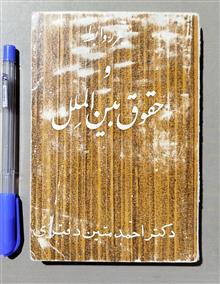 روابط
و
حقوق بین الملل
دکتر احمد متین دفتری